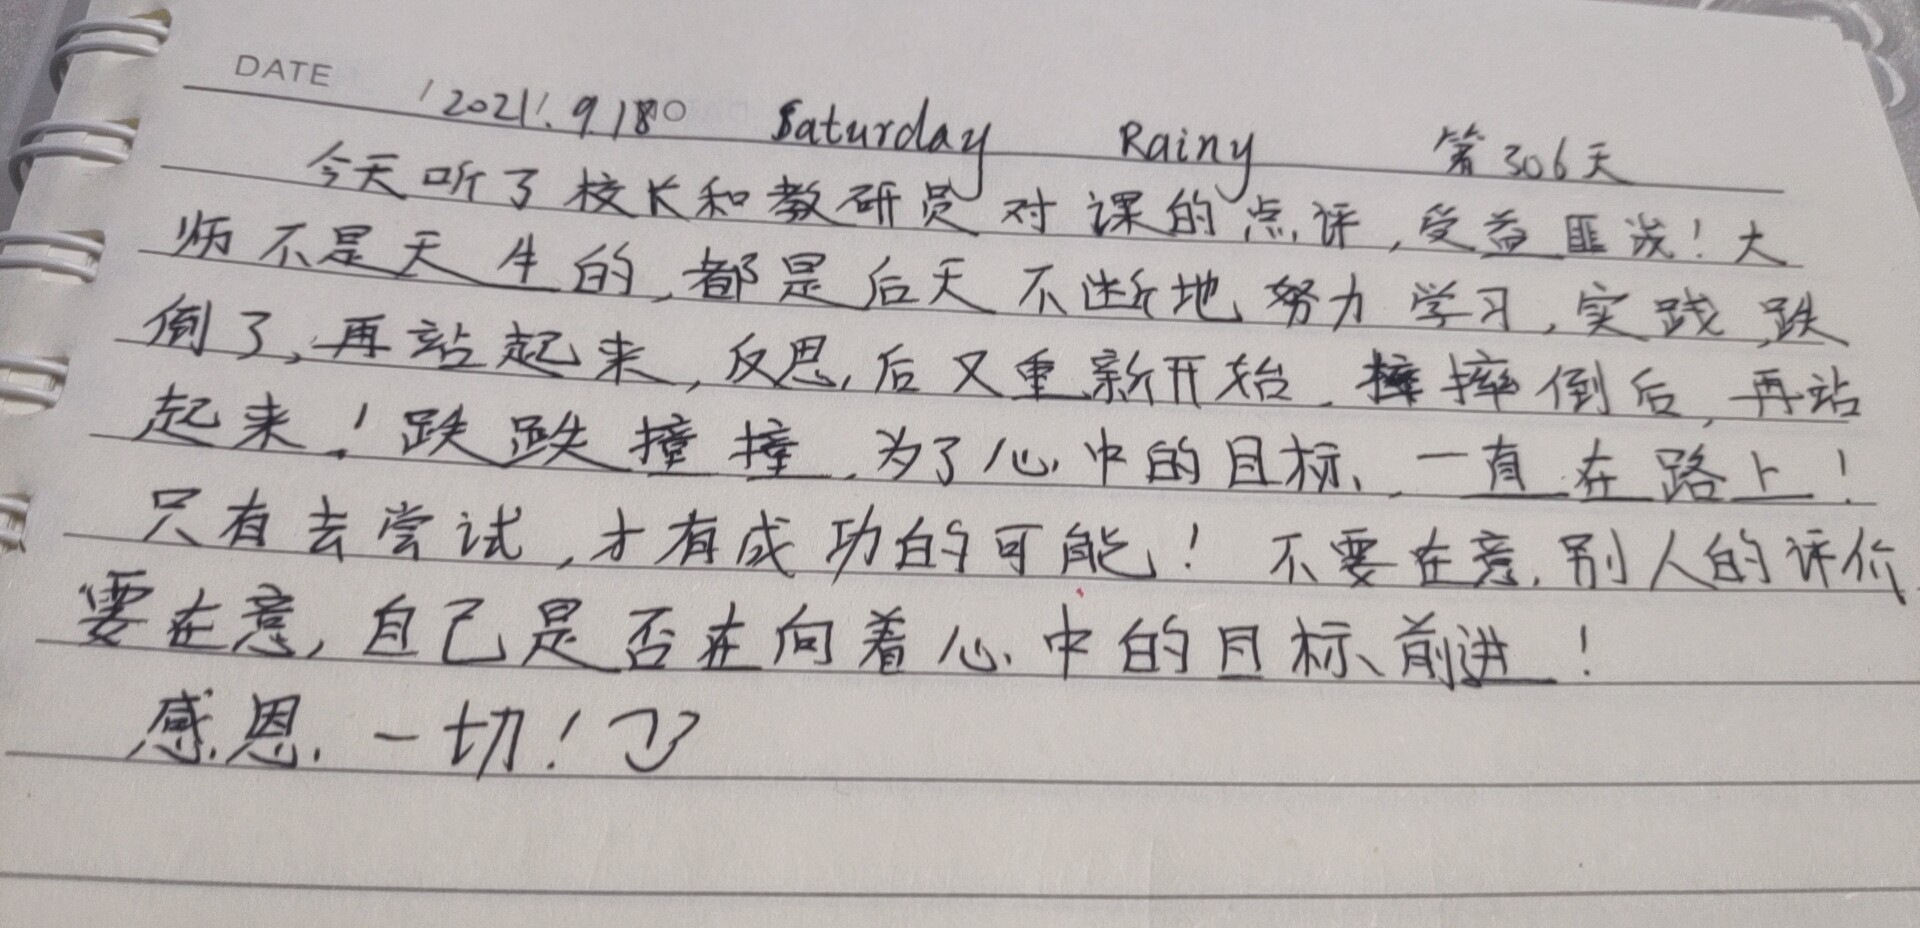 DATE 2021.9.18 Saturday Rainy 第306天
今天听了校长和教研员对课的点评,受益匪浅!大
师不是天生的,都是后天不断地努力学习,实践,跌
倒了,再站起来,反思,后又重新开始.摔倒后,再站
起来!跌跌撞撞,为了心中的目标,一直在路上!
只有去尝试,才有成功的可能!不要在意别人的评价
要在意,自己是否在向着心中的目标前进!
感恩一切!